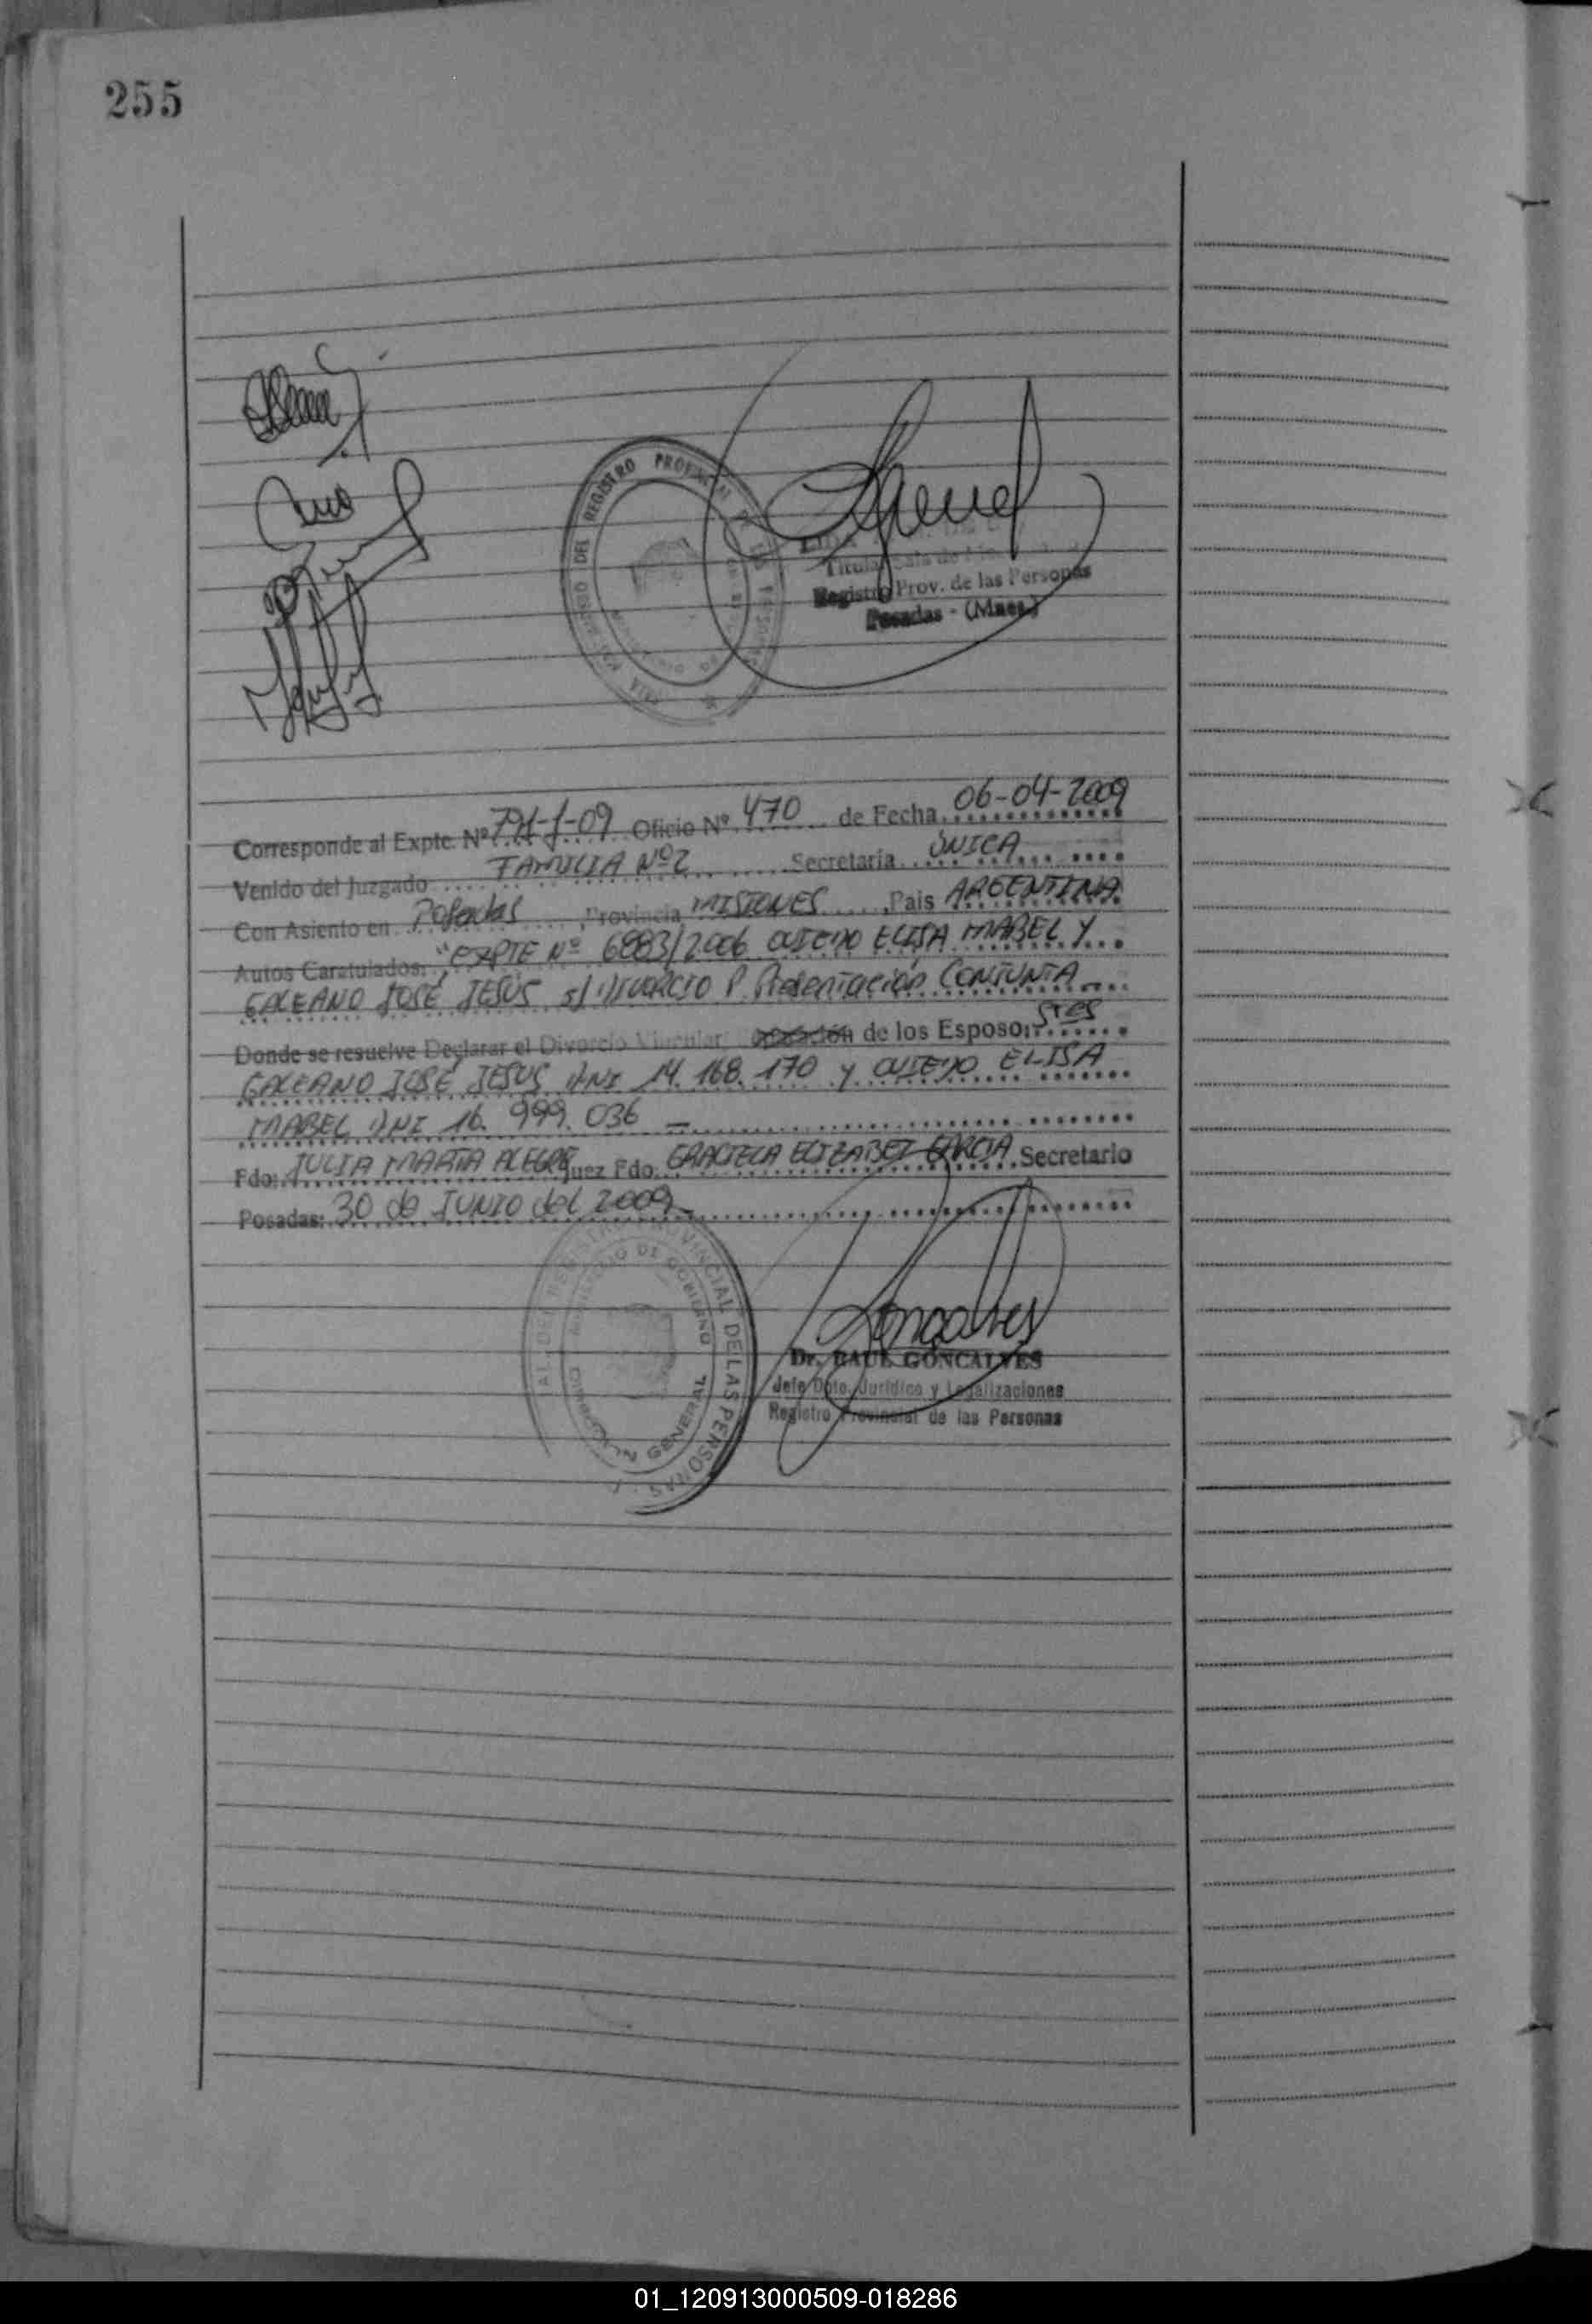 255
REGISTRO PROVINCIAL DE LAS PERSONAS
Titular Sala de
Registro Prov. de las Personas
Posadas - (Mnes.)
Corresponde al Expte. Nº 791-J-09 Oficio Nº 470 de Fecha 06-04-2009
Venido del Juzgado FAMILIA Nº 2 Secretaria ÚNICA
Con Asiento en Posadas, Provincia MISIONES, Pais ARGENTINA
Autos Caratulados: "EXPTE Nº 6883/2006 OVIEDO ELISA MABEL Y
GALEANO JOSÉ JESÚS s/ DIVORCIO P. Presentación CONJUNTA
Donde se resuelve Declarar el Divorcio Vincular de los Esposos: Sres
GALEANO JOSÉ JESÚS DNI 14.168.170 y OVIEDO ELISA
MABEL DNI 16.999.036 —
Fdo: JULIA MARTA ALEGRE Juez Fdo: GRACIELA ELIZABET GARCIA Secretario
Posadas: 30 de JUNIO del 2009
REGISTRO PROVINCIAL DE LAS PERSONAS
MINISTERIO DE GOBIERNO
DIRECCION GENERAL
Goncalves
Dr. RAUL GONCALVES
Jefe Dpto. Jurídico y Legalizaciones
Registro Provincial de las Personas
01_120913000509-018286